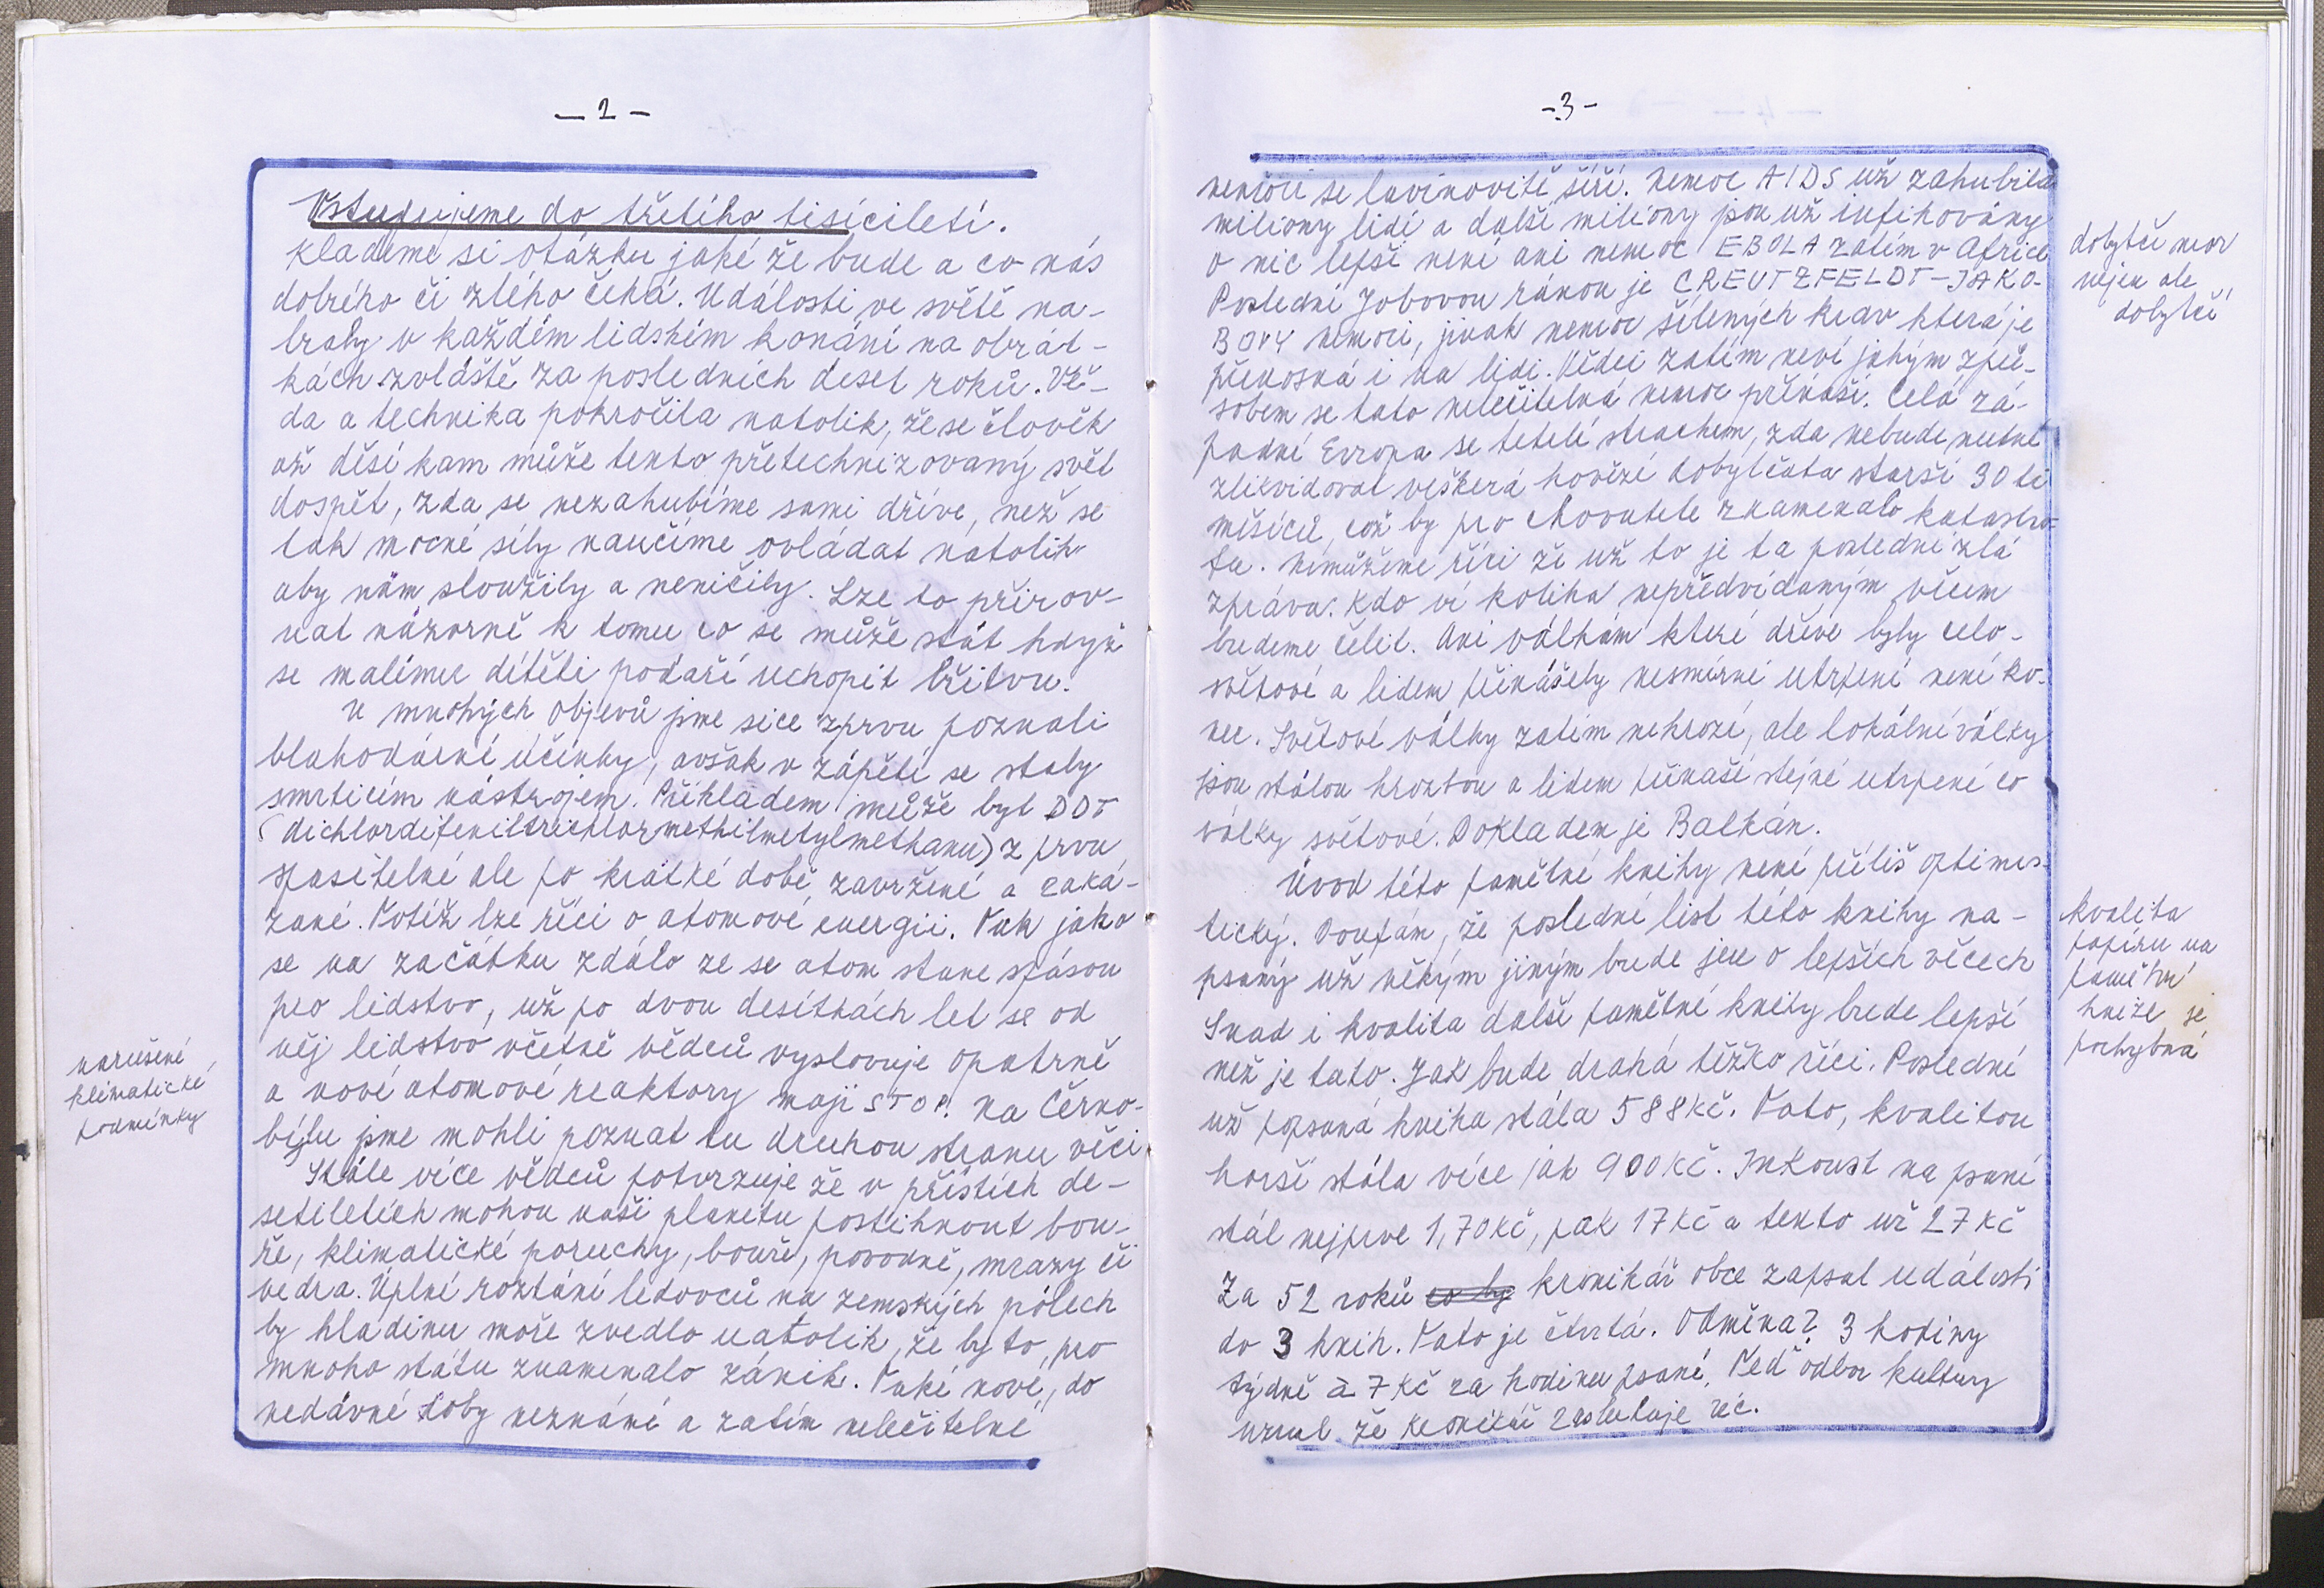 — 2 —
Vstupujeme do třetího tisíciletí.
Klademe si otázku jaké že bude a co nás
dobrého či zlého čeká. Události ve světě na-
braly v každém lidském konání na obrát-
kách zvláště za posledních deset roků. Vě-
da a technika pokročila natolik, že se člověk
až děsí kam může tento přetechnizovaný svět
dospět, zda se nezahubíme sami dříve, než se
tak mocné síly naučíme ovládat natolik
aby nám sloužily a neničily. Lze to přirov-
nat názorně k tomu co se může stát když
se malému dítěti podaří uchopit břitvu.
U mnohých objevů jsme sice zprvu poznali
blahodárné účinky, avšak v zápětí se staly
smrtícím nástrojem. Příkladem může byt DDT
(dichlordifeniltrichlormethilmetylmethanu) z prvu
spasitelné ale po krátké době zavržené a zaká-
zané. Totéž lze říci o atomové energii. Tak jako
se na začátku zdálo ze se atom stane spásou
pro lidstvo, už po dvou desítkách let se od
něj lidstvo včetně vědců vyslovuje opatrně
a nové atomové reaktory mají STOP. Na Černo-
bylu jsme mohli poznat tu druhou stranu věci
Stále více vědců potvrzuje že v příštích de-
setiletích mohou naši planetu postihnout bou-
ře, klimatické poruchy, bouře, povodně, mrazy či
vedra. Úplné roztání ledovců na zemských pólech
by hladinu moře zvedlo natolik, že by to, pro
mnoho státu znamenalo zánik. Také nové, do
nedávné doby neznámé a zatím neléčitelné
narušené
klimatické
podmínky
-3-
nemoci se lavinovitě šíří. Nemoc AIDS už zahubila
miliony lidí a další miliony jsou už infikovány
o nic lepší není ani nemoc EBOLA zatím v Africe
Poslední Jobovou ránou je CREUTZFELDT-JAKO-
BOVY nemoci, jinak nemoc šílených krav která je
přenosná i na lidi. Vědci zatím neví jakým způ-
sobem se tato neléčitelná nemoc přináší. Celá zá-
padní Evropa se tetelí strachem, zda nebude nutné
zlikvidovat veškerá hovězí dobytčata starší 30 ti
měsíců, což by pro chovatele znamenalo katastro-
fu. Nemůžeme říci že už to je ta poslední zlá
zpráva. Kdo ví kolika nepředvídaným věcem
budeme čelit. Ani válkám které dříve byly celo-
světové a lidem přinášely nesmírné utrpení není ko-
nec. Světové války zatím nehrozí, ale lokální války
jsou stálou hrozbou a lidem přináší stejné utrpení co
války světové. Dokladem je Balkán.
Úvod této pamětné knihy není příliš optimis-
tický. Doufám, že poslední list této knihy na-
psaný už někým jiným bude jen o lepších věcech
Snad i kvalita další pamětné knihy bude lepší
než je tato. Jak bude drahá těžko říci. Poslední
už popsaná kniha stála 588 Kč. Tato, kvalitou
horší stála více jak 900 Kč. Inkoust na psaní
stál nejprve 1,70 Kč, pak 17 Kč a tento už 27 Kč
Za 52 roků co by kronikář obce zapsal události
do 3 knih. Tato je čtvrtá. Odměna? 3 hodiny
týdně à 7 Kč za hodinu psaní. Teď odbor kultury
uznal že kronikář zasluhuje víc.
dobytčí mor
nejen ale
dobytčí
kvalita
papíru na
pamětní
knize je
pochybná